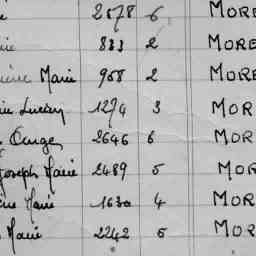 2678 6 MORE
833 2 MORE
Marie 968 2 MORE
Lucien 1274 3 MOR
2646 6 MOR
Joseph Marie 2489 5 MOR
Marie 1630 4 MOR
Marie 2242 5 MOR